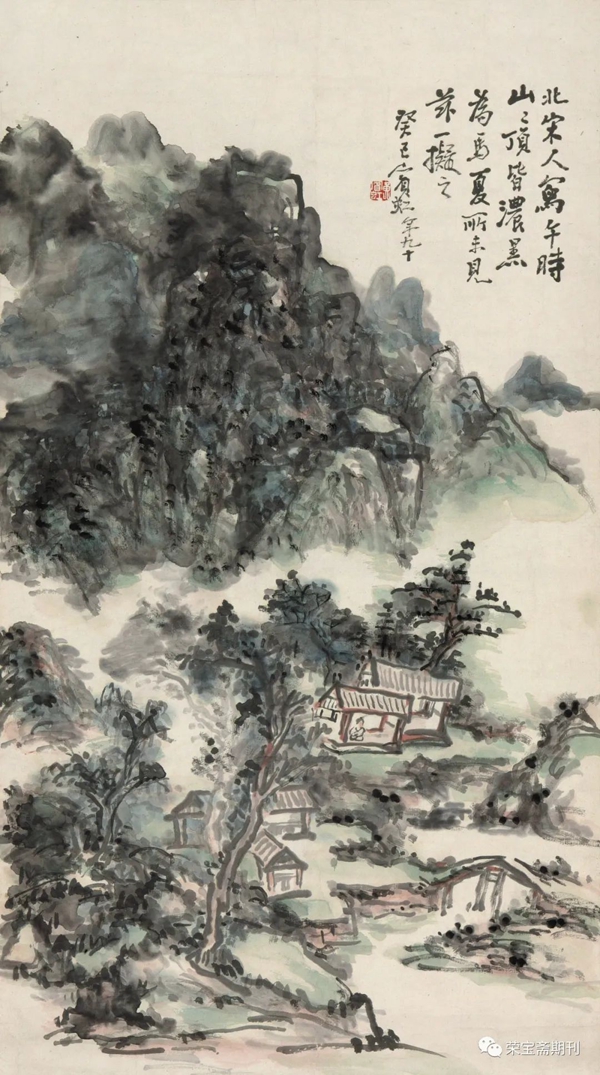 北宋人寫午時
山〻頂皆濃黑
為馬夏所未見
茲一擬之
癸巳賓虹年九十
荣宝斋期刊